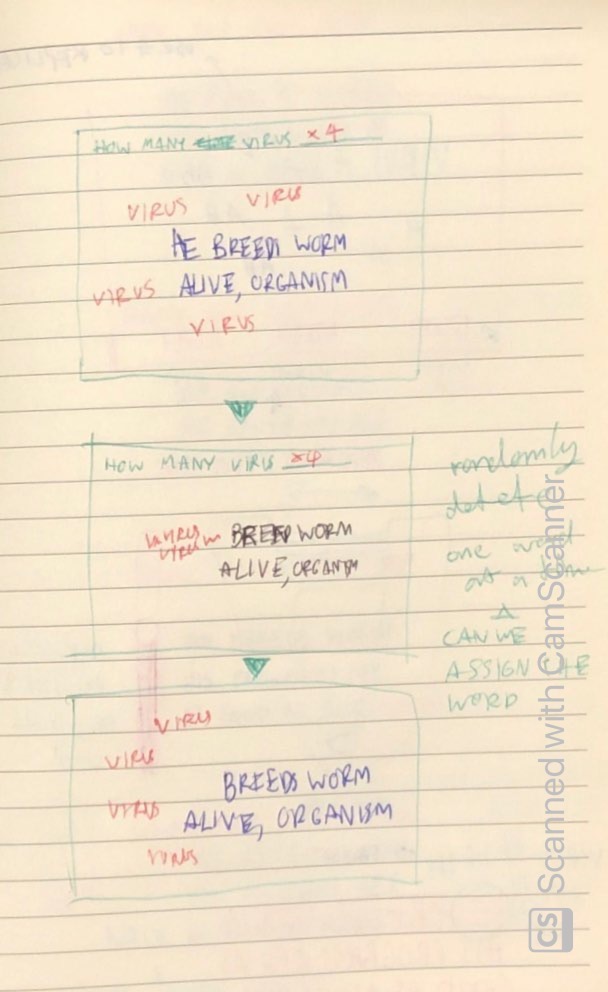 HOW MANY VIRUS ×4
VIRUS VIRUS
HE BREEDS WORM
VIRUS ALIVE, ORGANISM
VIRUS
HOW MANY VIRUS ×4
BREED WORM
ALIVE, ORGANISM
randomly
delete
one word
at a time
CAN WE
ASSIGN THE
WORD
VIRUS
VIRUS
BREEDS WORM
VIRUS ALIVE, ORGANISM
VIRUS
CS Scanned with CamScanner